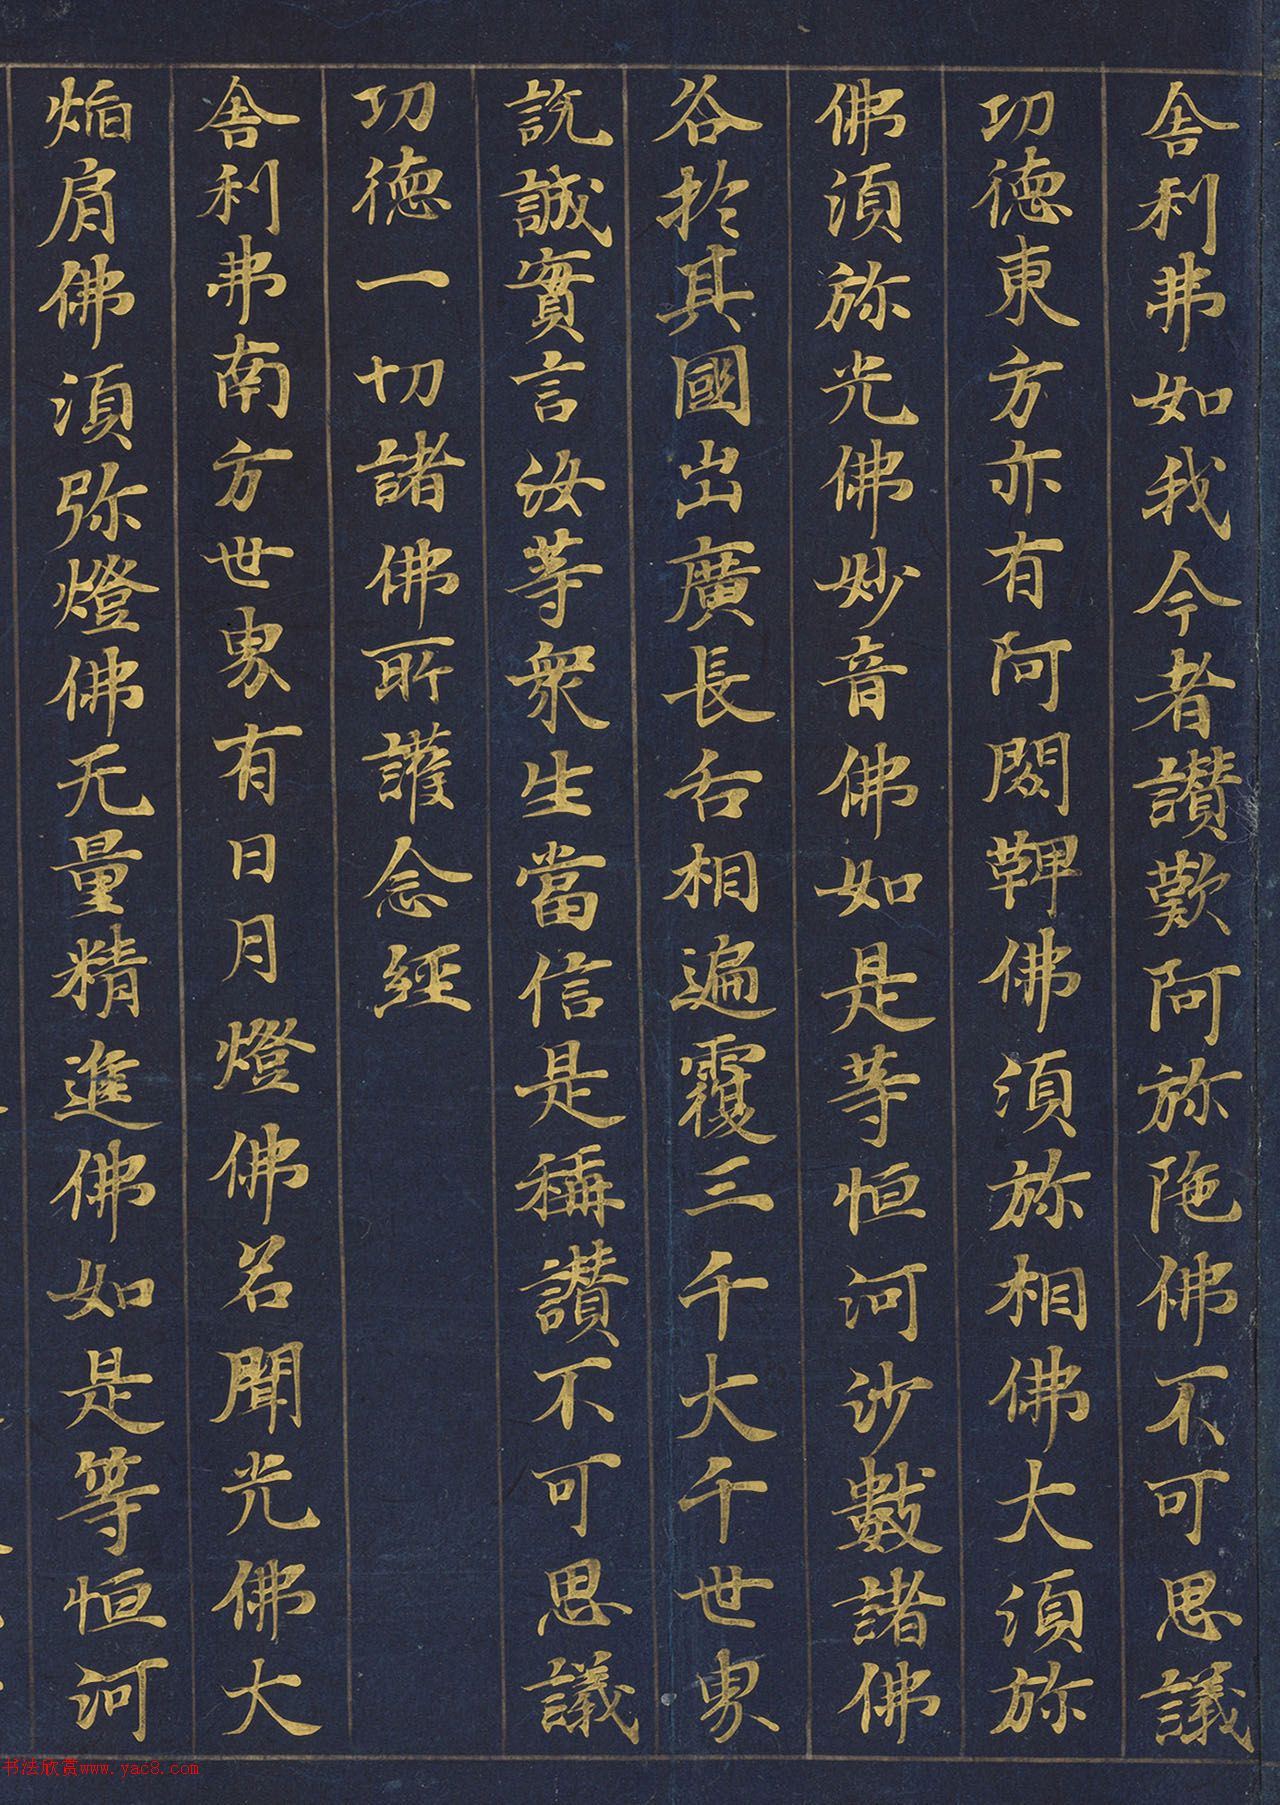 舎利弗如我今者讃歎阿弥陁佛不可思議
功徳東方亦有阿閦鞞佛須弥相佛大須弥
佛須弥光佛妙音佛如是等恒河沙數諸佛
各於其國出廣長舌相遍覆三千大千世界
說誠實言汝等衆生當信是稱讃不可思議
功徳一切諸佛所護念經
舎利弗南方世界有日月燈佛名聞光佛大
焔肩佛須弥燈佛无量精進佛如是等恒河
书法欣赏www.yac8.com